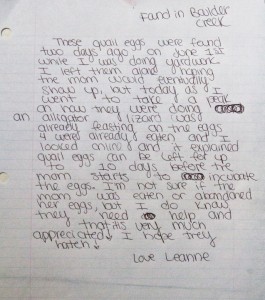 Found in Boulder
Creek
These quail eggs were found
two days ago on June 1st
while I was doing yardwork
I left them alone hoping
the mom would eventually
show up, but today as I
went to take a peak
on how they were doing
an alligator lizard was
already feasting on the eggs
4 were already eaten and I
looked online and it explained
quail eggs can be left for up
to 16 days before the
mom starts to incubate
the eggs. I'm not sure if the
mom was eaten or abandoned
her eggs, but I do know
they need help and
that it is very much
appreciated I hope they
hatch
Love Leanne